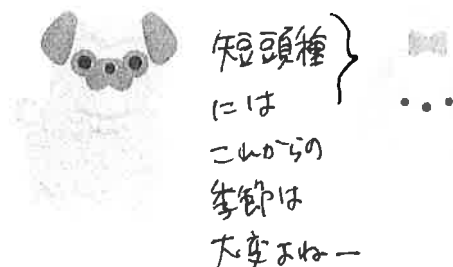 短頭種
には
これからの
季節は
大変よねー